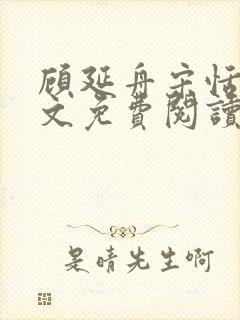 顾延舟宋恬
文免費閱讀
是晴先生啊